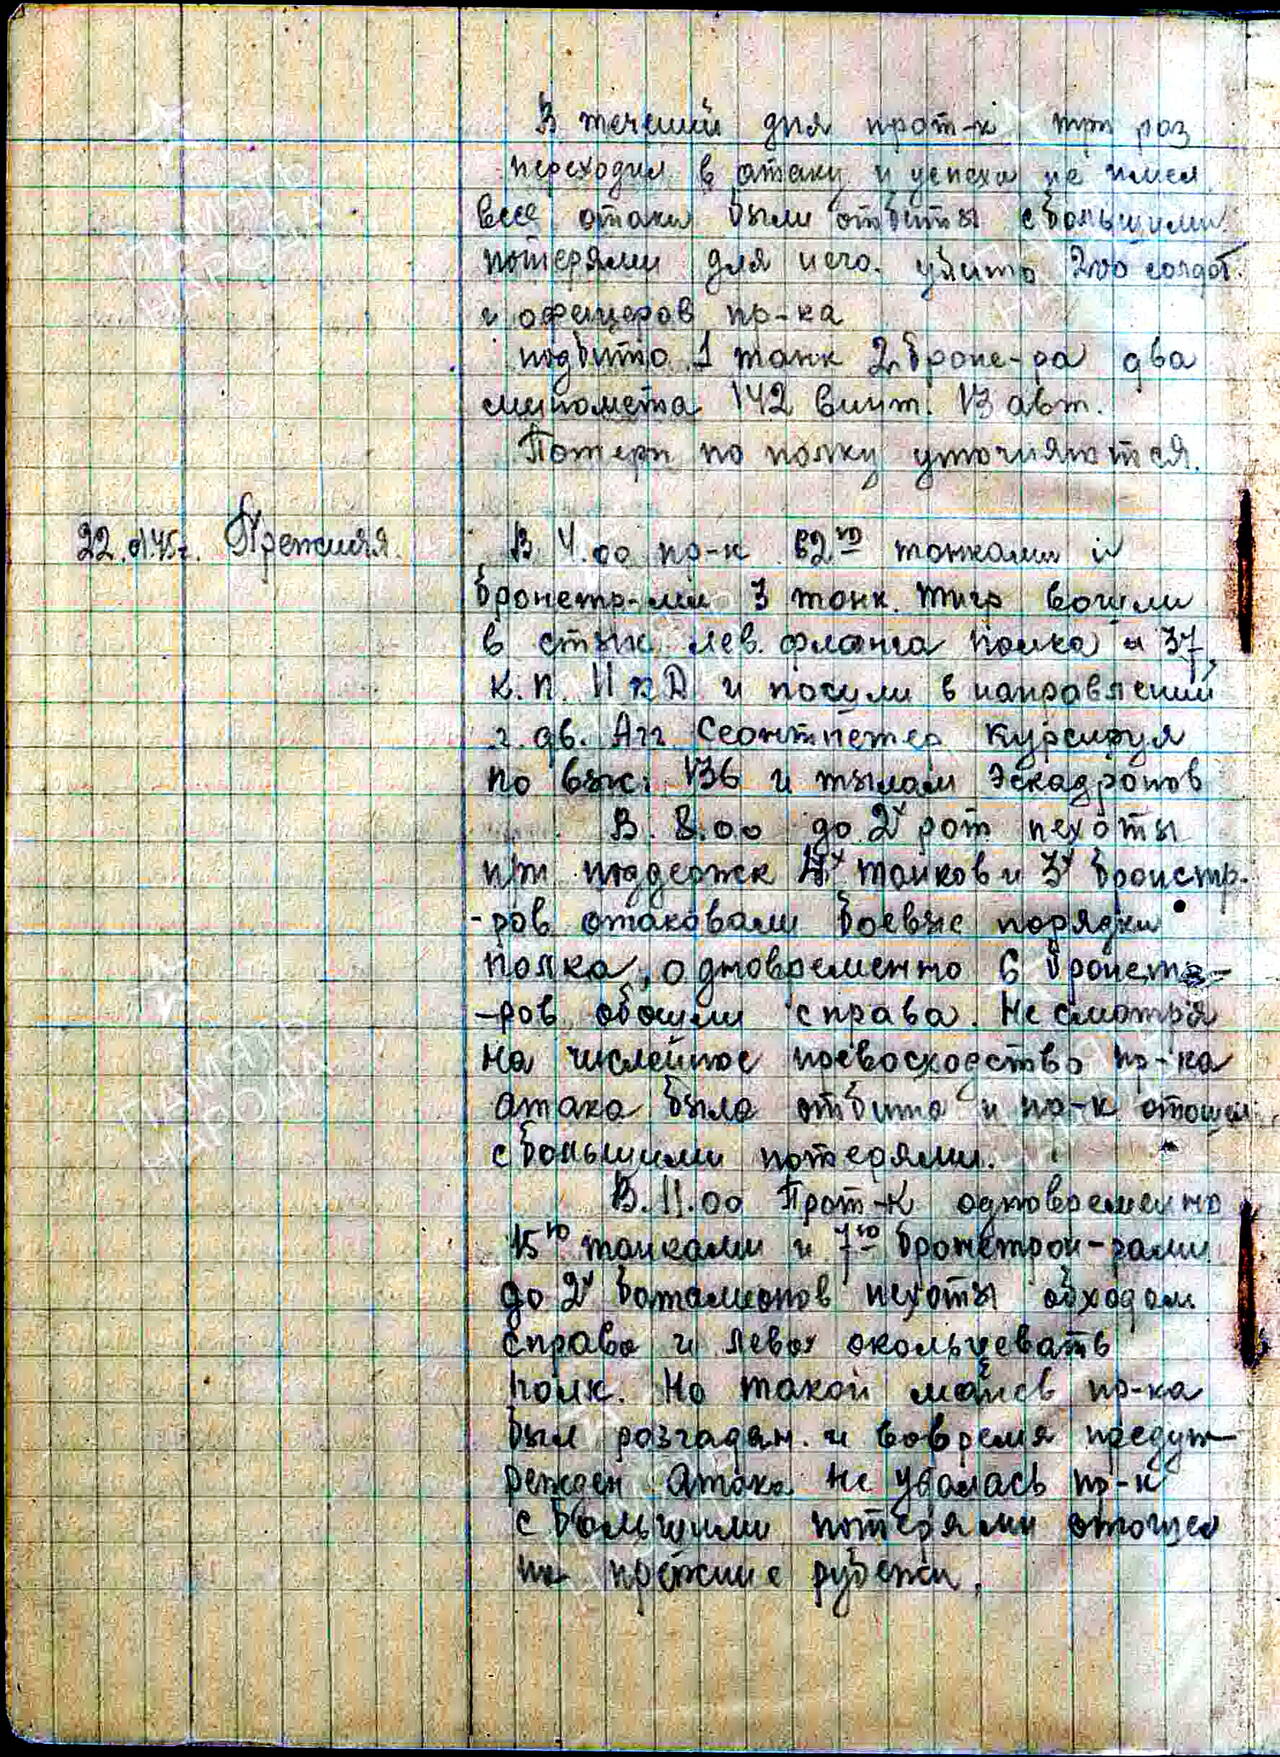 В течений дня прот-к три раз
переходил в атаку и успеха не имел
все атаки были отбиты с большими
потерями для него. убито 200 солдат.
и офицеров пр-ка
подбито 1 танк 2 броне-ра два
миномета 142 винт. 13 авт.
Потери по полку уточняются.
22.01.45г. Прежняя.
В 4.00 пр-к 12ю танками и
бронетр-ми 3 танк. тигр вошли
в стык лев. фланга полка и 37
к.п. 11 кД и пошли в направлений
г. дв. Агг Сеонтпетер курсируя
по выс. 136 и тылам эскадронов
В. 8.00 до 2х рот пехоты
при поддержк танков и 3х бронетр-
-ров атаковали боевые порядки
полка, одновременно 6 бронетр-
-ров обошли справа. Не смотря
на численное превосходство пр-ка
атака была отбита и пр-к отошел
с большими потерями.
В. 11.00 Прот-к одновременно
15ю танками и 7ю бронетран-рами
до 2х баталионов пехоты обходом
справа и лева окольцевать
полк. Но такой манев пр-ка
был розгадан. и вовремя предуп-
режден атака не удалась пр-к
с большими потерями отошел
на прежние рубежи.
ПАМЯТЬ
НАРОДА
ПАМЯТЬ
НАРОДА